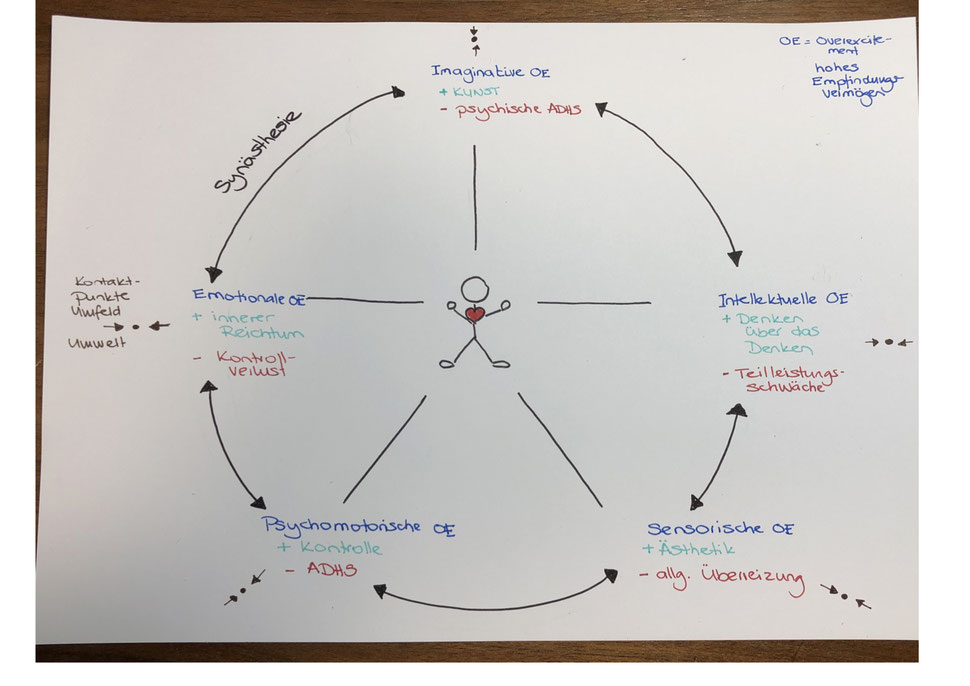 OE = Overexcite-
ment
hohes
Empfindungs-
vermögen
Imaginative OE
+ KUNST
- psychische ADHS
Synästhesie
Kontakt-
punkte
Umfeld
Umwelt
Emotionale OE
+ innerer
Reichtum
- Kontroll-
verlust
Intellektuelle OE
+ Denken
über das
Denken
- Teilleistungs-
schwäche
Psychomotorische OE
+ Kontrolle
- ADHS
Sensorische OE
+ Ästhetik
- allg. Überreizung